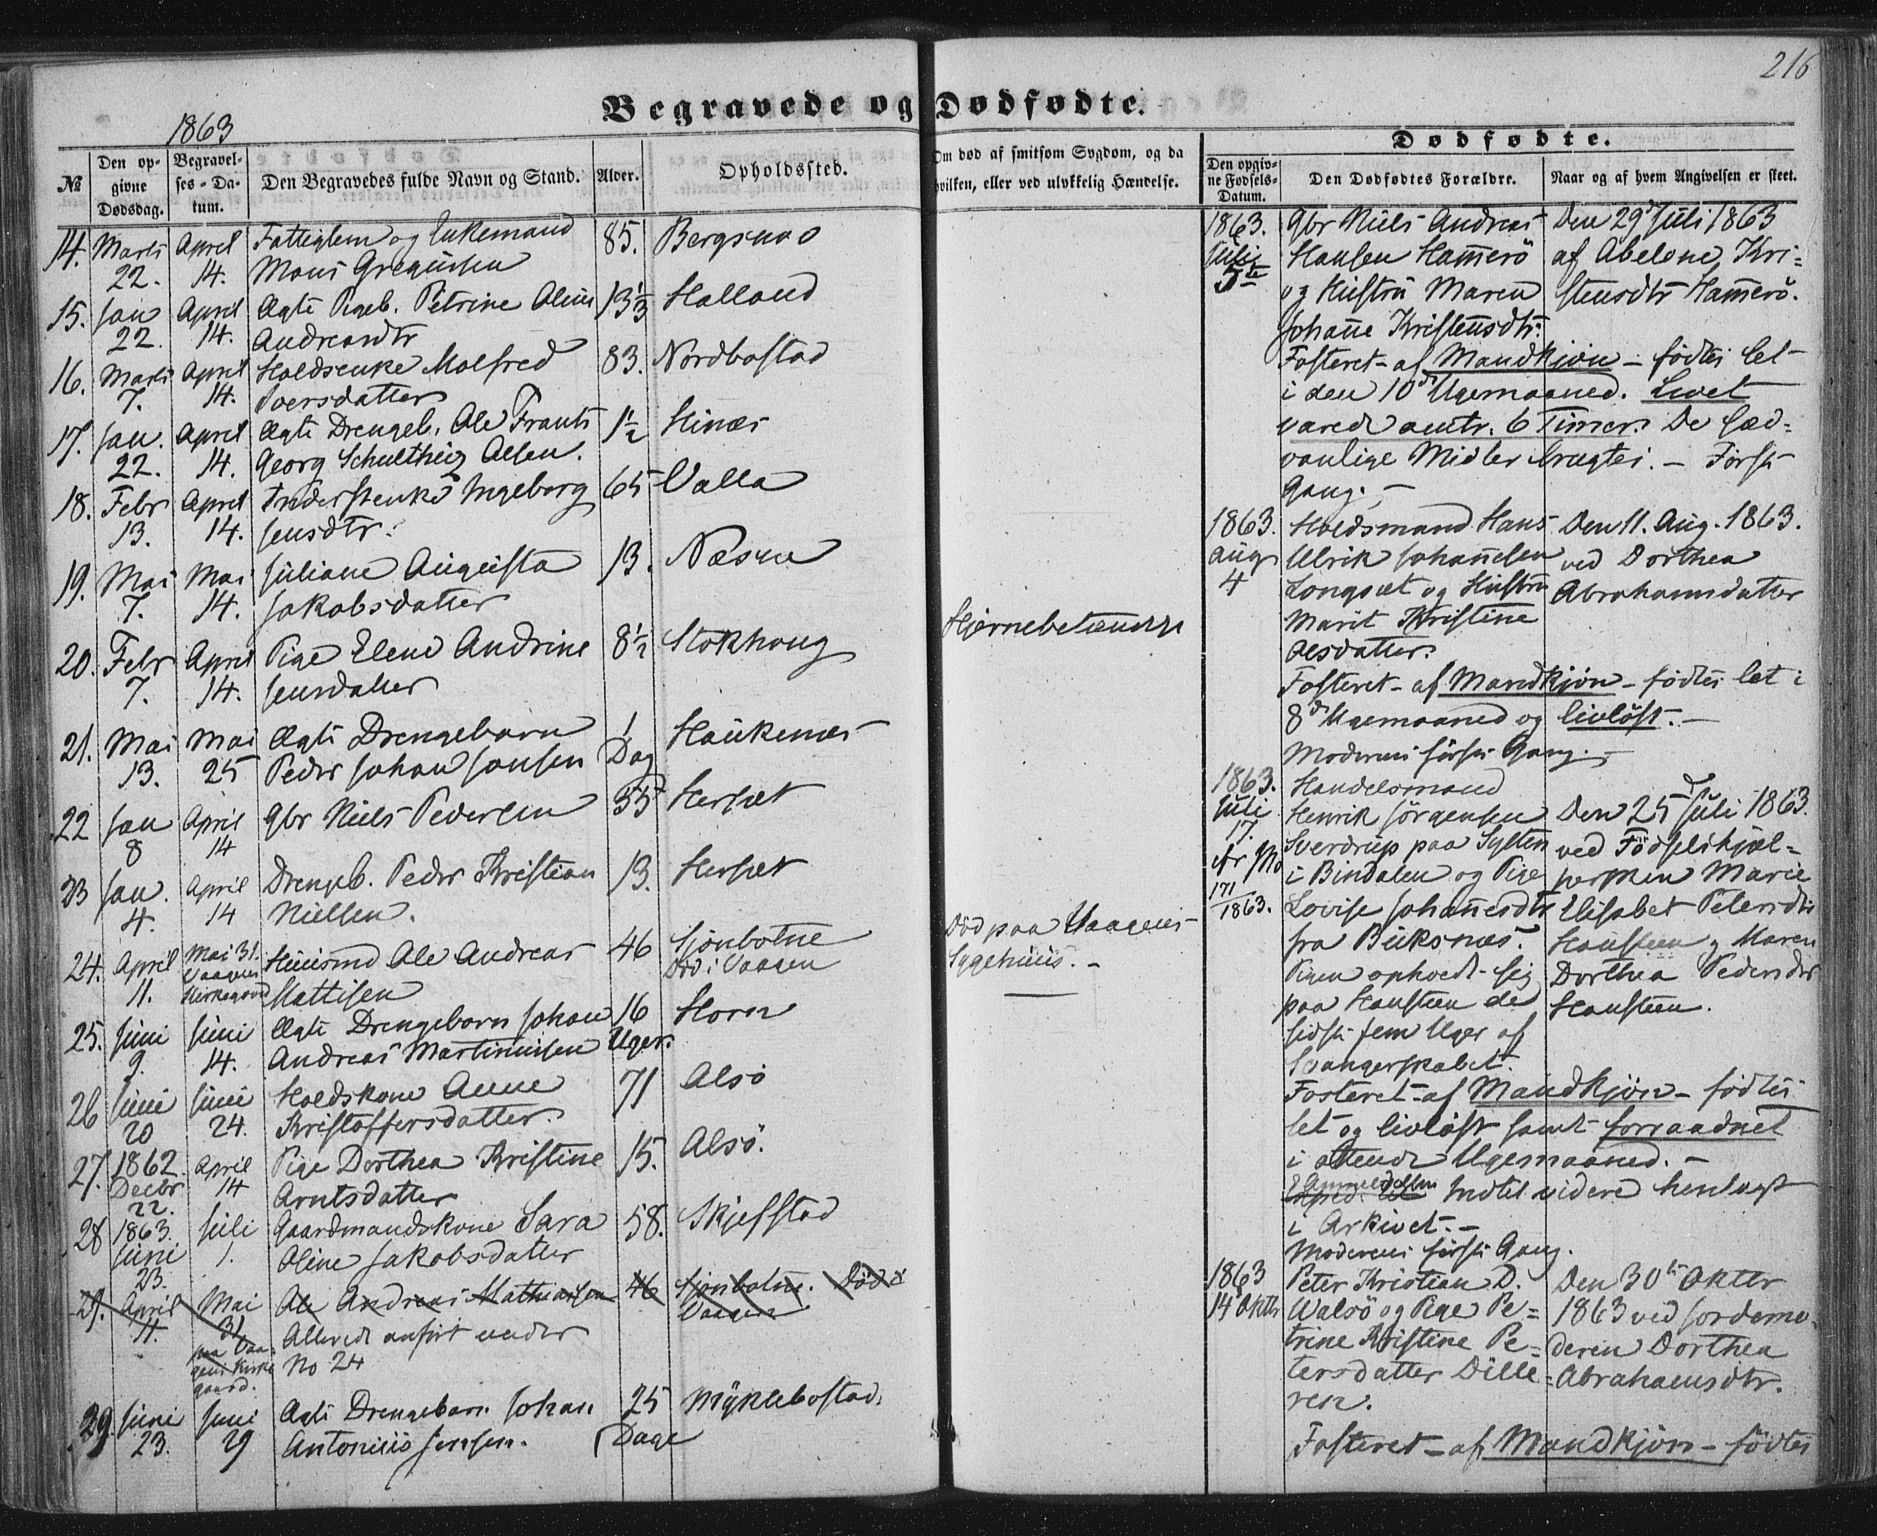 216
Begravede og Dødfødte.
1863
№
Den op-
givne
Dødsdag.
Begravel-
ses-Da-
tum.
Den Begravedes fulde Navn og Stand.
Alder.
Opholdssted.
Om død af smitsom Sygdom, og da
hvilken, eller ved ulykkelig Hændelse.
Dødfødte.
Den opgiv-
ne Fødsels-
Datum.
Den Dødfødtes Forældre.
Naar og af hvem Angivelsen er skeet.
14. Marts April Fattiglem og Enkemand 85. Bergsnes
22. 14. Mons Gregusen
15. Jan April Ægte Pigeb. Petrine Oline 13 1/3 Halland
22. 14. Andreasdtr
16. Marts April Holdsenke Malfred 83. Nordbostad
7. 14. Iversdatter
17. Jan. April Ægte Drengeb. Ole Frants 1 1/2 Hinæs
22. 14. Georg Schultheiz Olsen.
18. Febr April Inderstenke Ingeborg 65 Valla
13. 14. Jensdtr.
19. Mai Mai Juliane Augusta 13. Næsne
7. 14. Jakobsdatter
20. Febr April Pige Elene Andrine 8 1/2 Stokhoug Hjernebetændelse
7. 14. Jensdatter
21. Mai Mai Ægte Drengebarn 1 Haukenæs
13. 25 Peder Johan Jonsen Dag
22 Jan April Gbr Niels Pedersen 55 Herset
8 14
23 Jan. April Drengeb. Peder Kristian 13. Herset
4. 14 Nielsen.
24. April Mai 31. Huusmd Ole Andreas 46 Sjonbotne Død paa Vaagens
11. Vaagens Kirkegaard Mattisen Død i Vaagen Sygehuus.
25. Juni Juni Ægte Drengebarn Johan 16 Horn
9. 14. Andreas Martinusen Uger.
26 Juni Juni Holdskone Anne 71 Alsø
20 24. Kristoffersdatter.
27. 1862 April Pige Dorthea Kristine 15. Alsø.
Decbr 14 Arntsdatter
22.
28 1863. Juli Gaardmandskone Sara 58. Skjefstad
Juni 1. Oline Jakobsdatter
23.
29. April Mai Ole Andreas Mathiasen 46 Sjonbotne. Død i
11. 31 Allerede anført under Vaagen
paa Vaa- No 24
gens Kirke
gaard.
29. Juni Juni Ægte Drengebarn Johan 25 Myklebostad.
23. 29 Antonius Jensen. Dage
1863. Gbr Niels Andreas Den 29d Juli 1863
Juli Hansen Hammerö af Abelone Kri-
5te og Hustru Maren stensdtr Hammerö.
Johanne Kristensdtr.
Fosteret af Mandkjøn – fødtes let
i den 10d Ugemaaned. Livet
varede omtr. 6 Timer. De sæd-
vanlige Midler brugtes. – Første
Gang. –
1863. Holdsmand Hans Den 11. Aug. 1863.
Aug Ulrik Johannesen ved Dorthea
4 Longset og Hustru Abrahamsdatter
Marit Kristine
Olsdatter.
Fosteret – af Mandkjøn – fødtes let i
8d Ugemaaned og livløst. –
Moderens første Gang. –
1863. Handelsmand
Juli Henrik Jørgensen Den 25d Juli 1863.
17. Sverdrup paa Sylten ved Fødselshjæl-
i Bindalen og Pige persken Marie
171/1863. Lovise Johannesdtr Elisabet Petersdtr
fra Buksnæs. Hansteen og Maren
Pigen opholdt sig Dorthea Pedersdtr
paa Hansteen de Hansteen.
sidste fem Uger af
Svangerskabet.
Fosteret – af Mandkjøn – fødtes
let og livløst samt forraadnet
i ottende Ugemaaned. –
Anmeldelsen indtil videre henlagt
i Arkivet. –
Moderens første Gang.
1863 Peter Kristian D. Den 30te Oktbr
14 Oktbr Walsö og Pige Pe- 1863 ved Jordemo-
trine Kristine Pe- deren Dorthea
tersdatter Dille- Abrahamsdtr.
ren.
Fosteret – af Mandkjøn – fødtes